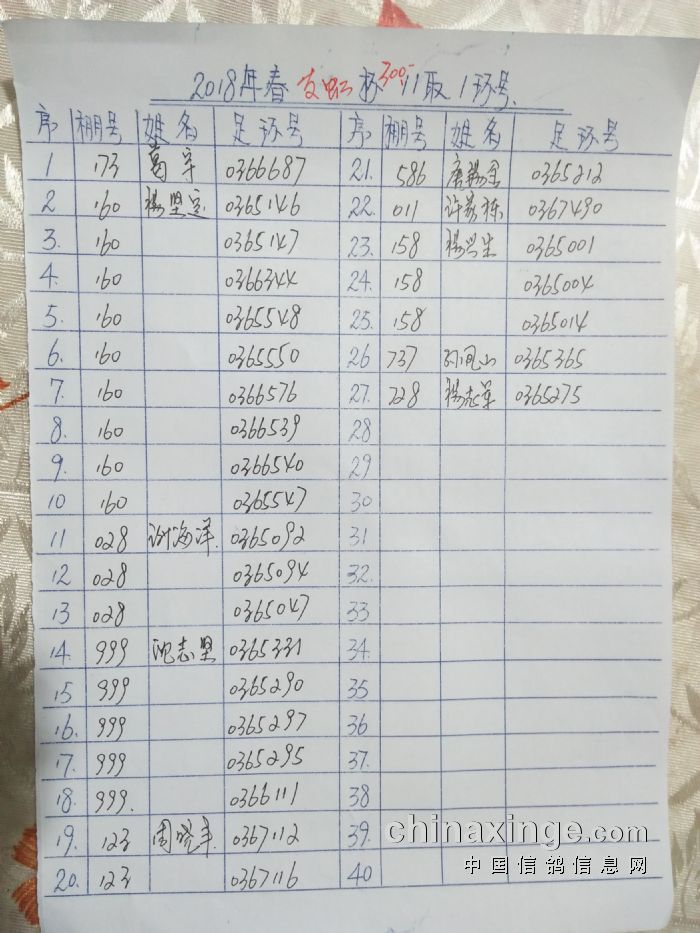 2018年春友虹杯300-11取1环号.
序 棚号 姓名 足环号 序 棚号 姓名 足环号
1 173 葛宇 0366687 21. 586 唐 0365212
2 160 杨坚定 0365146 22. 011 许 栋 0367490
3. 160 0365147 23. 158 杨兴生 0365001
4. 160 0366344 24. 158 0365004
5. 160 0365548 25. 158 0365014
6. 160 0365550 26 737 孙凤山 0365365
7. 160 0366576 27. 728 杨志军 0365275
8. 160 0366539 28
9. 160 0366540 29
10 160 0365547 30
11 028 谢海洋. 0365092 31
12 028 0365094 32.
13 028 0365047 33
14. 999 沈志坚 0365331 34
15 999 0365290 35
16. 999 0365297 36
17. 999 0365295 37.
18. 999. 0366111 38
19. 123 周晓丰. 0367112 39.
20. 123 0367116 40
chinaxinge.com
中国信鸽信息网